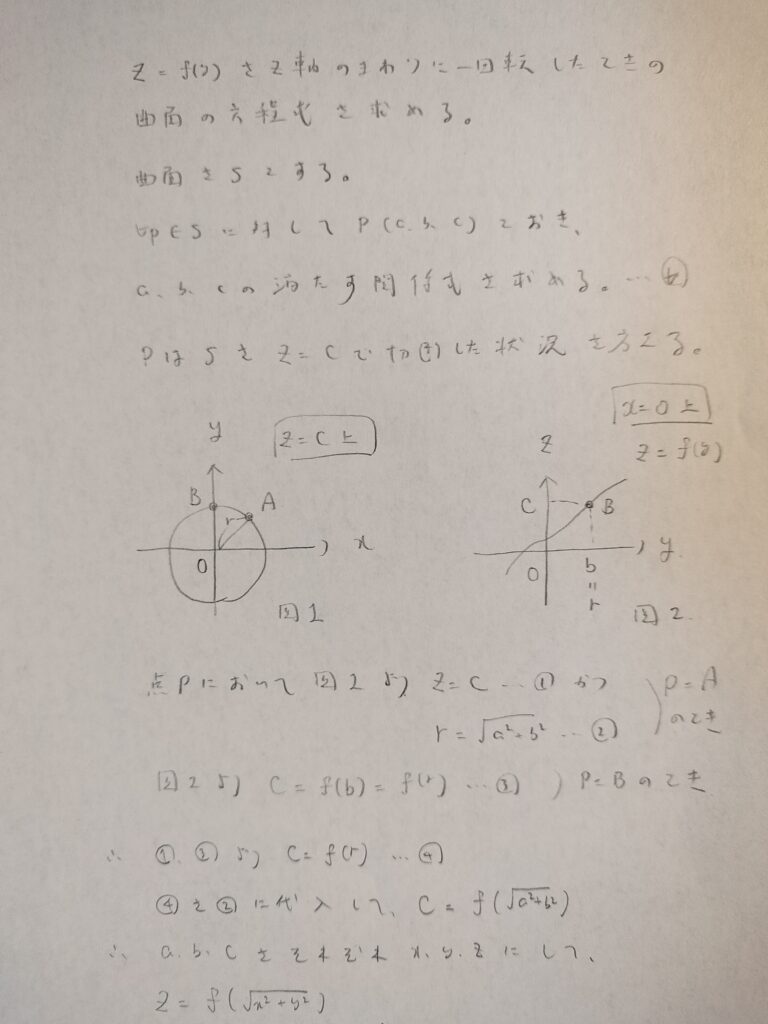 z = f(y) を z軸のまわりに一回転したときの
曲面の方程式を求める。
曲面をSとする。
∀p∈S に対して P(a, b, c) とおき、
a、b、cの満たす関係式を求める。…
PはSを z=c で切断した状況を考える。
z=c上
x=0上
z = f(y)
y
B
A
r
O
x
図1
z
C
B
O
b
=
r
y
図2.
点Pにおいて 図1より z=c …① かつ
r=√a²+b² …②
P=A
のとき
図2より c = f(b) = f(r) …③ P=Bのとき
∴ ①、②より c=f(r) …④
④を②に代入して、c = f(√a²+b²)
∴ a. b. c をそれぞれ x. y. z にして、
z = f(√x²+y²)